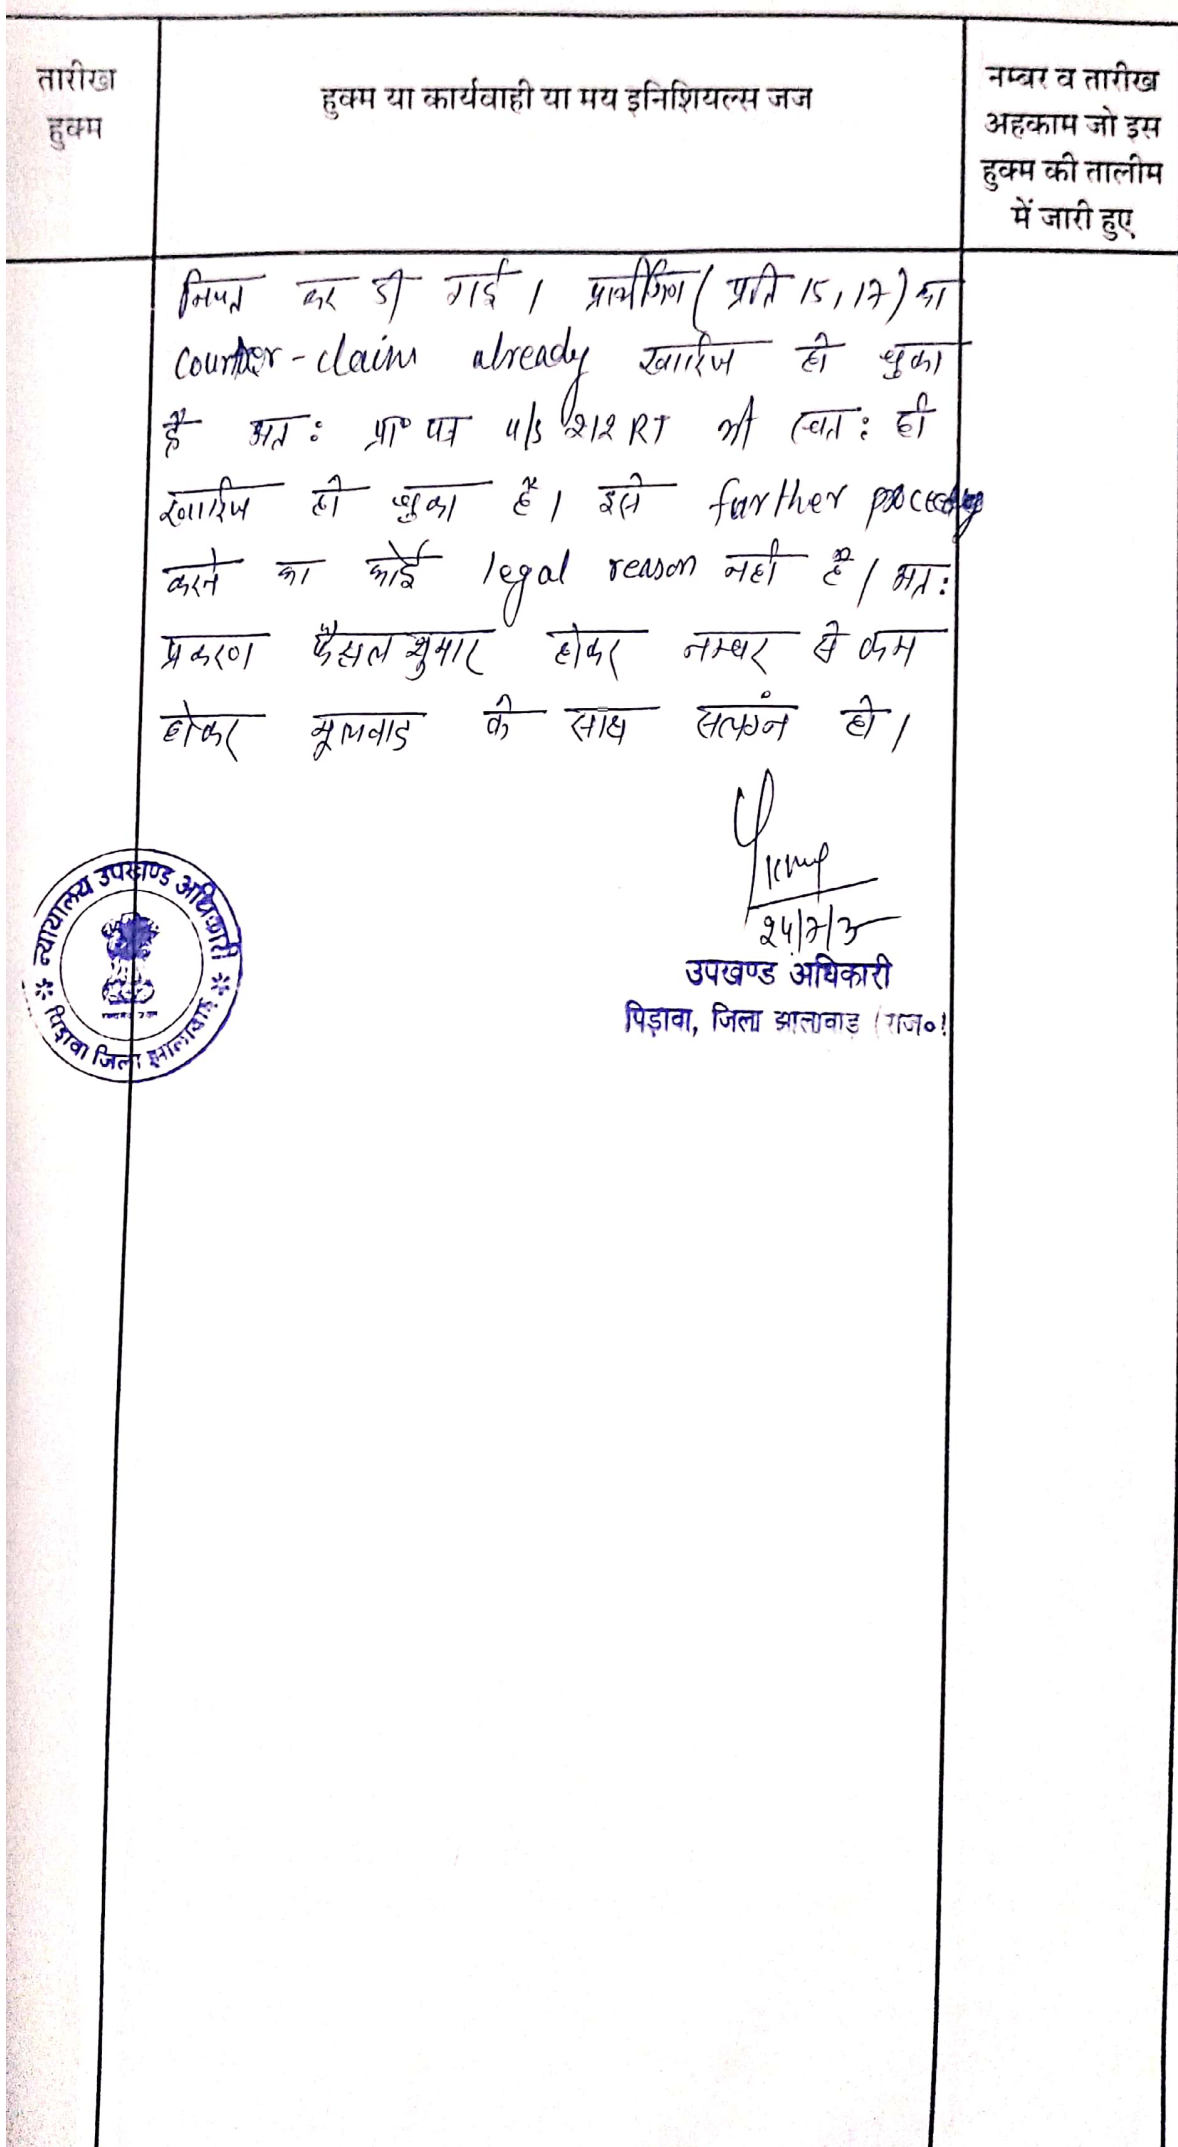 तारीख
हुक्म
हुक्म या कार्यवाही या मय इनिशियल्स जज
नम्बर व तारीख
अहकाम जो इस
हुक्म की तालीम
में जारी हुए
नियत कर दी गई । प्रार्थीगण ( प्रति 15, 17) का
counter-claim already खारिज हो चुका
है अतः प्रा० पत्र u/s 212 RT भी स्वतः ही
खारिज हो चुका है । इसे further proceeding
करने का कोई legal reason नहीं है । अतः
प्रकरण फैसल शुमार होकर नम्बर से कम
होकर मूलवाद के साथ सलंग्न हो ।
24/7/3
उपखण्ड अधिकारी
पिड़ावा, जिला झालावाड़ (राज०)
न्यायालय उपखण्ड अधिकारी
पिड़ावा जिला झालावाड़